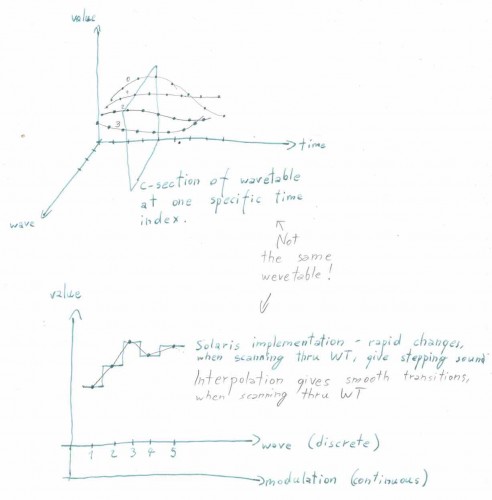 value
0
1
2
3
time
c-section of wavetable
at one specific time
index.
wave
Not
the same
wevetable!
value
Solaris implementation - rapid changes,
when scanning thru WT, give stepping sound
Interpolation gives smooth transitions,
when scanning thru WT
1 2 3 4 5
wave (discrete)
modulation (continuous)